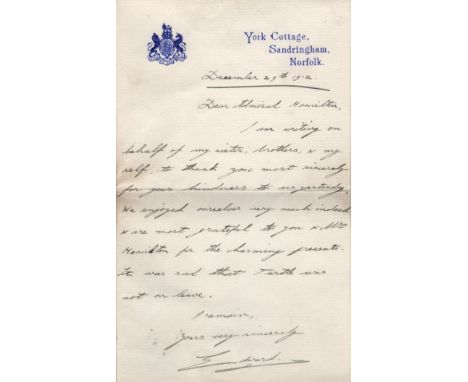 York Cottage,
Sandringham,
Norfolk.
December 29th 1912.
Dear Admiral Hamilton,
I am writing on
behalf of my sister, brothers, & my
self, to thank you most sincerely
for your kindness to us yesterday.
We enjoyed ourselves very much indeed
& are most grateful to you & Mrs
Hamilton for the charming presents.
It was sad that Turtle was
not on leave.
I remain,
Yours very sincerely
Edward.